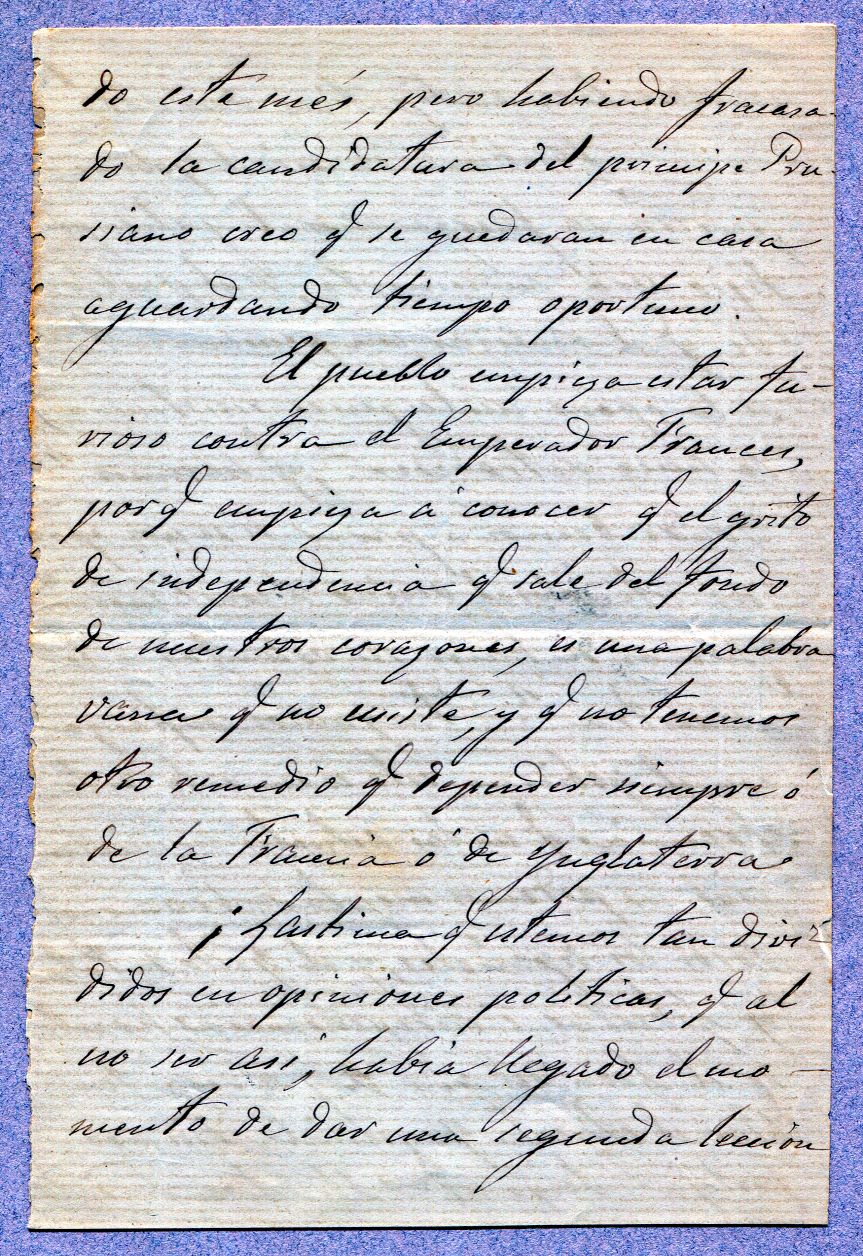 do este més, pero habiendo fracasa-
do la candidatura del principe Pru-
siano creo q se quedaran en casa
aguardando tiempo oportuno.
El pueblo empieza estar fu-
rioso contra el Emperador Frances,
porq empieza á conocer q el grito
de independencia q sale del fondo
de nuestros corazones, es una palabra
vana q no existe, y q no tenemos
otro remedio q depender siempre ó
de la Francia ó de Ynglaterra
¡Lastima q estemos tan divi-
didos en opiniones politicas, q al
no ser asi, habia llegado el mo-
mento de dar una segunda leccion